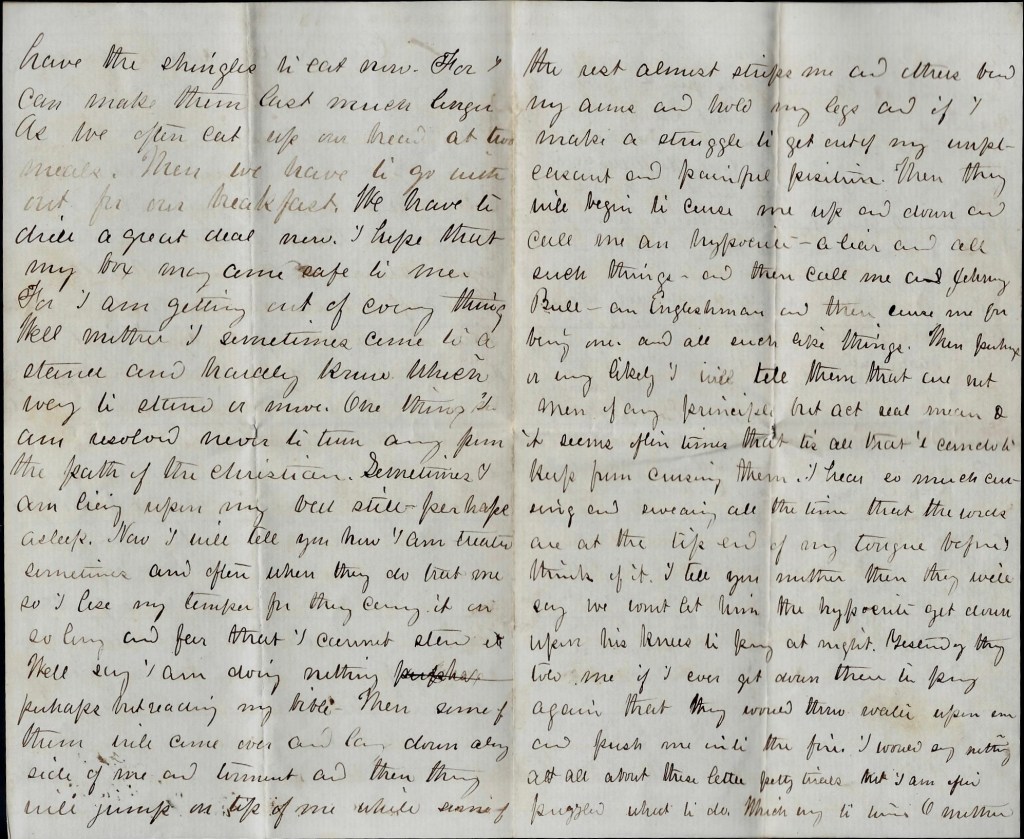 have the shingles to eat now. For I
can make them last much longer
As we often eat up our bread at two
meals. Then we have to go with
out for our breakfast. We have to
drill a great deal now. I hope that
my box may come safe to me.
For I am getting out of every thing
Well mother I sometimes come to a
stand and hardly know which
way to stand or move. One thing I
am resolved never to turn away from
the path of the christian. Sometimes I
am lieing upon my bed still perhaps
asleep. Now I will tell you how I am treated
sometimes and often when they do treat me
so I lose my temper for they carry it on
so long and far that I cannot stand it
Well say I am doing nothing perhaps
perhaps but reading my bible - Then some of
them will come over and lay down along
side of me and torment and then they
will jump on top of me while some of
the rest almost strips me and others bend
my arms and hold my legs and if I
make a struggle to get out of my unpl-
easant and painful position. Then they
will begin to curse me up and down and
call me an hypocrite - a liar and all
such things - and then call me and Johnny
Bull - an Englishman and then curse me for
being one and all such like things. Then perhaps
or very likely I will tell them that are not
men of any principle but act real mean &
it seems often times that tis all that I can do to
keep from cursing them. I hear so much cur-
sing and swearing all the time that the words
are at the tip end of my tongue before I
think of it. I tell you mother then they will
say we wont let him the hypocrite get down
upon his knees to pray at night. Yesterday they
told me if I ever get down there to pray
again that they would throw water upon me
and push me into the fire. I would say nothing
att all about these little petty trials but I am often
puzzled what to do. Which way to turn O mother